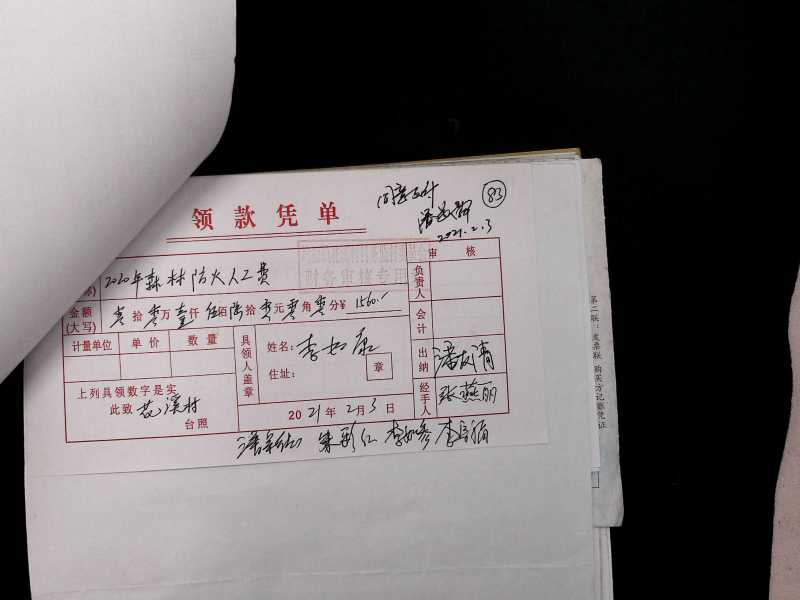 同意支付
83
领款凭单
2021.2.3
财务审核专用章
审核
2020年森林防火人工费
负责人
金额(大写) 零拾零万壹仟伍佰陆拾零元零角零分¥ 1560.-
会计
计量单位 单价 数量
具领人盖章
姓名:李如康
住址:
章
出纳
潘友清
上列具领数字是实
此致 花溪村
台照
经手人
张燕丽
2021年2月3日
李如参
第二联:发票联 购买方记账凭证